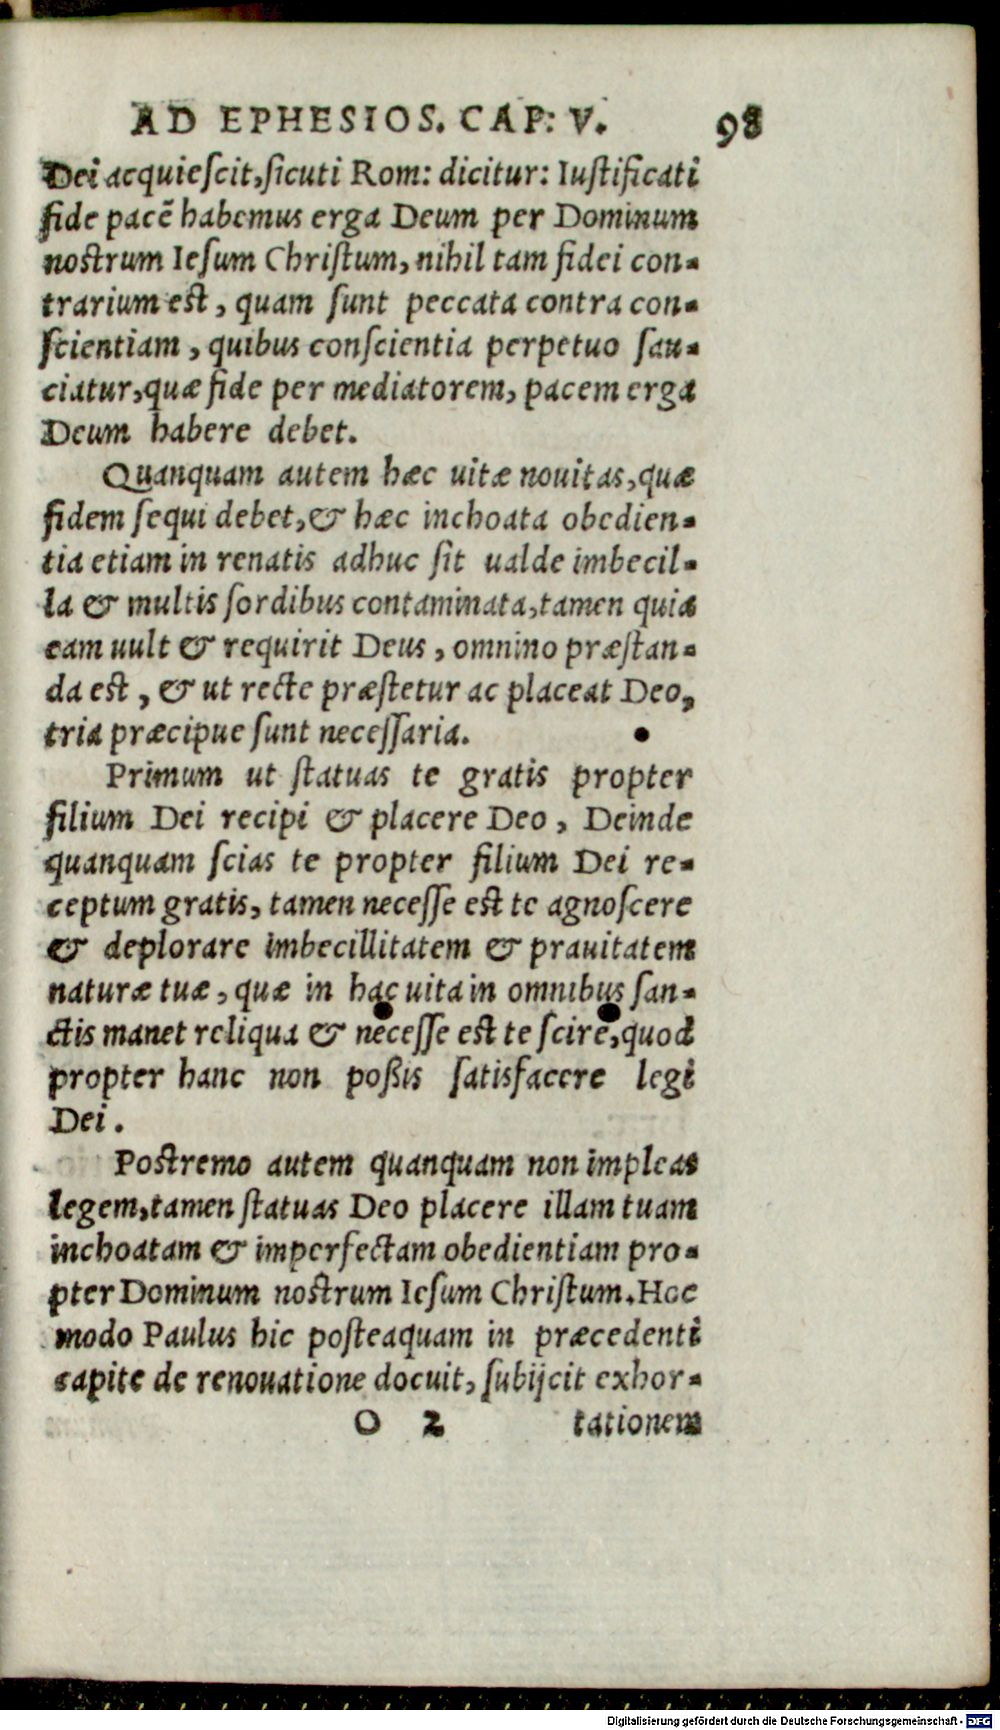 AD EPHESIOS. CAP: V. 98
Dei acquieſcit, ſicuti Rom: dicitur: Iuſtificati
fide pacē habemus erga Deum per Dominum
nostrum Ieſum Chriſtum, nihil tam fidei con-
trarium est, quam ſunt peccata contra con-
ſcientiam, quibus conſcientia perpetuo ſau-
ciatur, quæ fide per mediatorem, pacem erga
Deum habere debet.
Quanquam autem hæc uitæ nouitas, quæ
fidem ſequi debet, & hæc inchoata obedien-
tia etiam in renatis adhuc ſit ualde imbecil-
la & multis ſordibus contaminata, tamen quia
eam uult & requirit Deus, omnino præſtan-
da est, & ut recte præſtetur ac placeat Deo,
tria præcipue ſunt neceſſaria.
Primum ut ſtatuas te gratis propter
filium Dei recipi & placere Deo, Deinde
quanquam ſcias te propter filium Dei re-
ceptum gratis, tamen neceſſe est te agnoſcere
& deplorare imbecillitatem & prauitatem
naturæ tuæ, quæ in hac uita in omnibus ſan-
ctis manet reliqua & neceſſe est te ſcire, quod
propter hanc non poßis ſatisfacere legi
Dei.
Postremo autem quanquam non impleas
legem, tamen ſtatuas Deo placere illam tuam
inchoatam & imperfectam obedientiam pro-
pter Dominum nostrum Ieſum Chriſtum. Hoc
modo Paulus hic poſteaquam in præcedenti
capite de renouatione docuit, ſubijcit exhor-
O 2 tationem
Digitalisierung gefördert durch die Deutsche Forschungsgemeinschaft - DFG